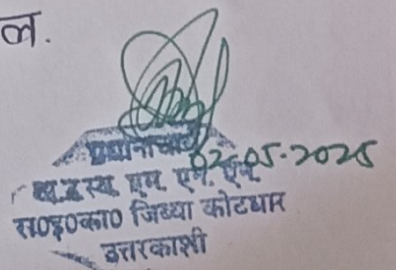 ल.
प्रधानाचार्य
02-05-2025
एम. एम.
रा0इ0का0 जिब्या कोटधार
उत्तरकाशी